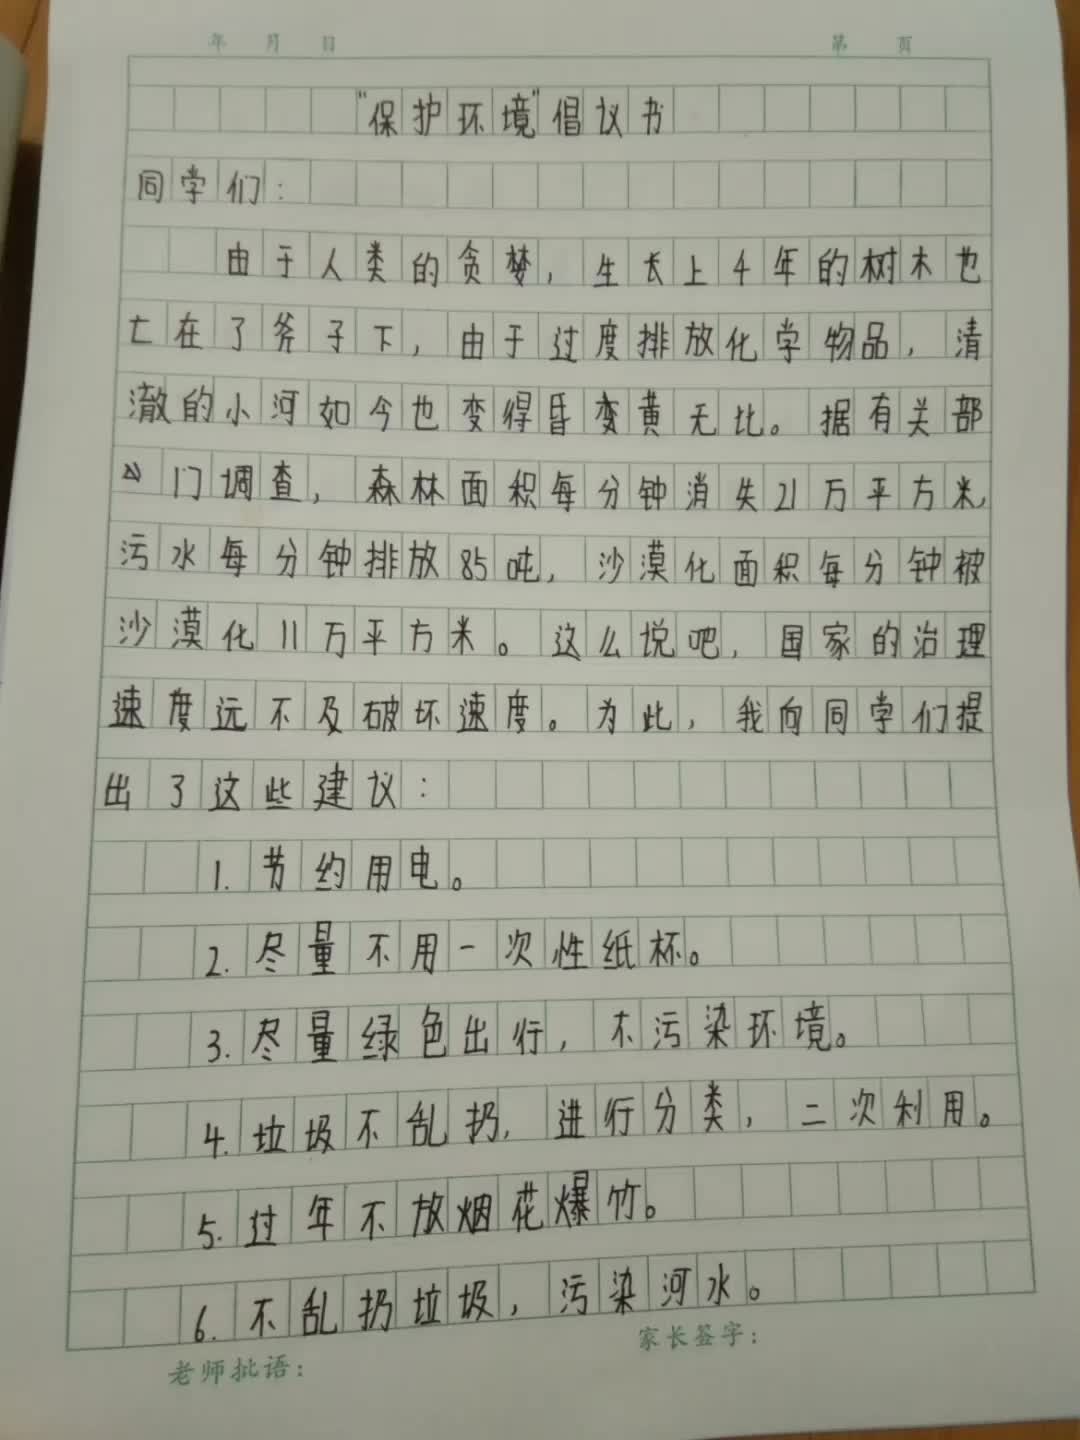 年 月 日 第 页
“保护环境”倡议书
同学们：
由于人类的贪婪，生长上千年的树木也
亡在了斧子下，由于过度排放化学物品，清
澈的小河如今也变得昏变黄无比。据有关部
门调查，森林面积每分钟消失21万平方米，
污水每分钟排放85吨，沙漠化面积每分钟被
沙漠化11万平方米。这么说吧，国家的治理
速度远不及破坏速度。为此，我向同学们提
出了这些建议：
1.节约用电。
2.尽量不用一次性纸杯。
3.尽量绿色出行，不污染环境。
4.垃圾不乱扔，进行分类，二次利用。
5.过年不放烟花爆竹。
6.不乱扔垃圾，污染河水。
老师批语： 家长签字：